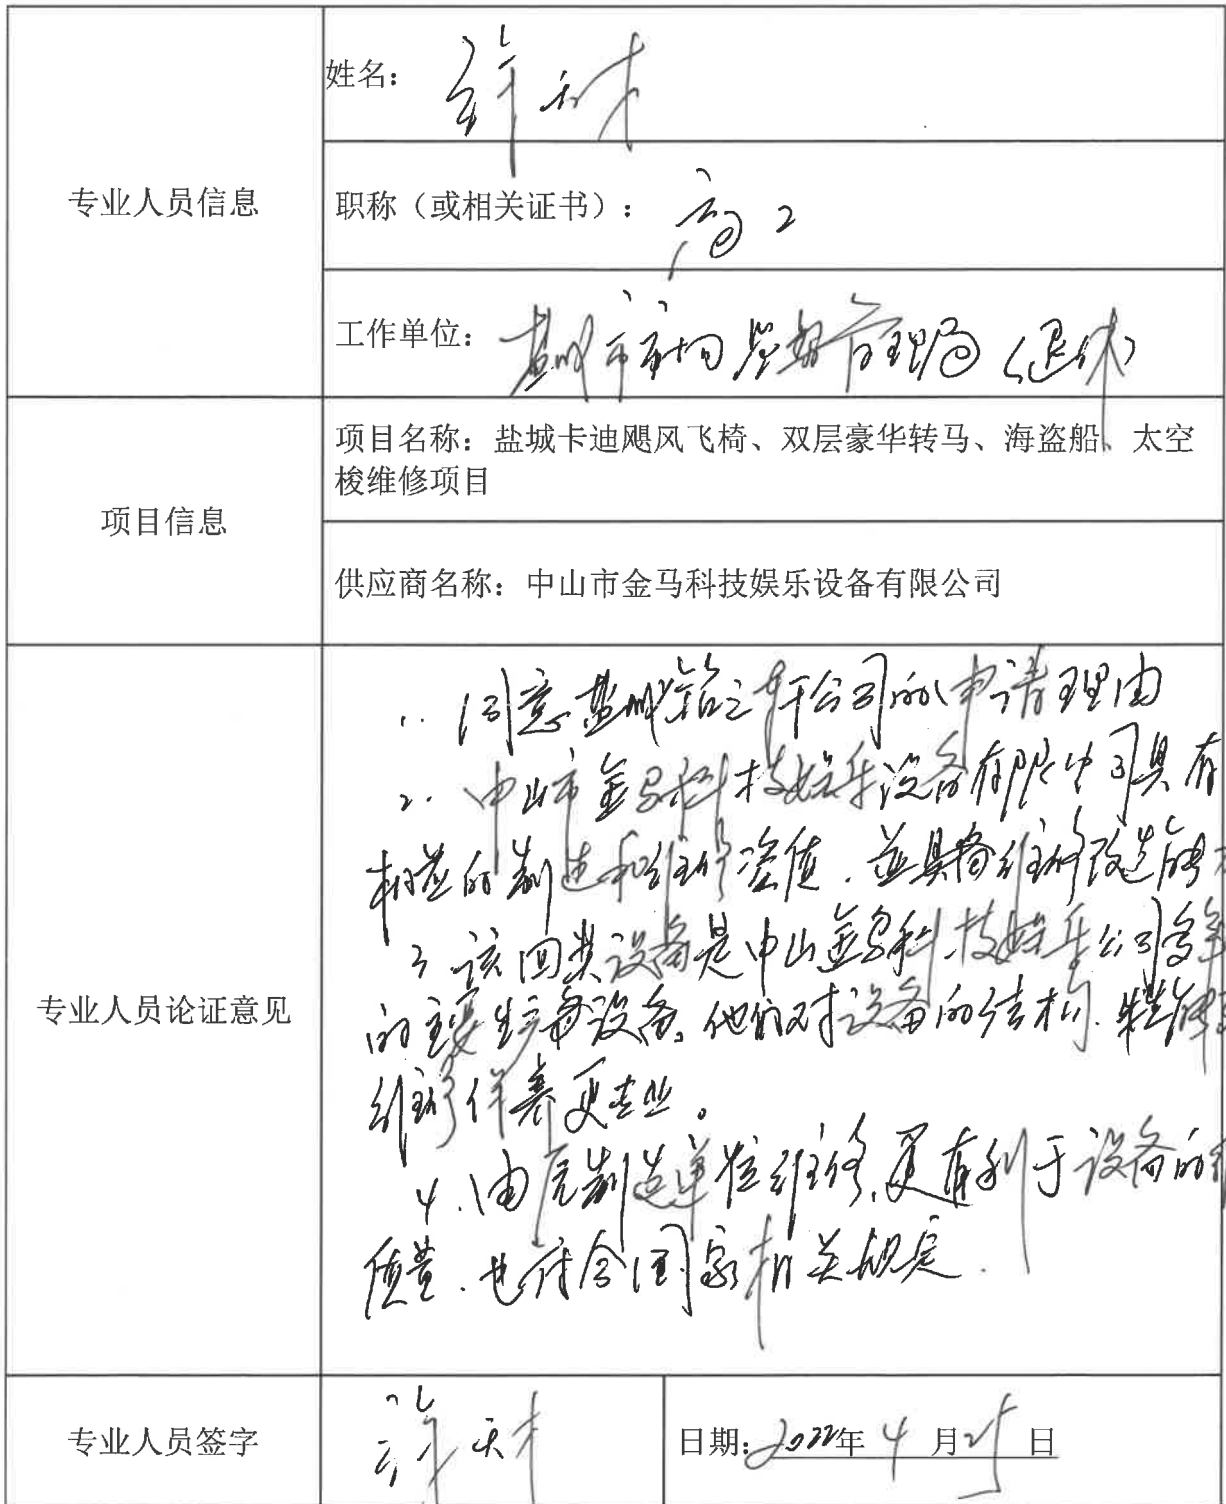 专业人员信息
姓名：许
职称（或相关证书）：高工
工作单位：盐城市市场监督管理局（退休）
项目信息
项目名称：盐城卡迪飓风飞椅、双层豪华转马、海盗船、太空
梭维修项目
供应商名称：中山市金马科技娱乐设备有限公司
专业人员论证意见
1. 同意盐城公司的申请理由
2. 中山市金马科技娱乐设备有限公司具有
相应的制造和维修资质，并具备维修改造能
3 该四类设备是中山金马科技娱乐公司多年
的主要生产设备，他们对设备的结构、性能
维修保养更专业。
4. 由原制造单位维修，更有利于设备的
质量，也符合国家相关规定.
专业人员签字
许
日期：2022年4月25日